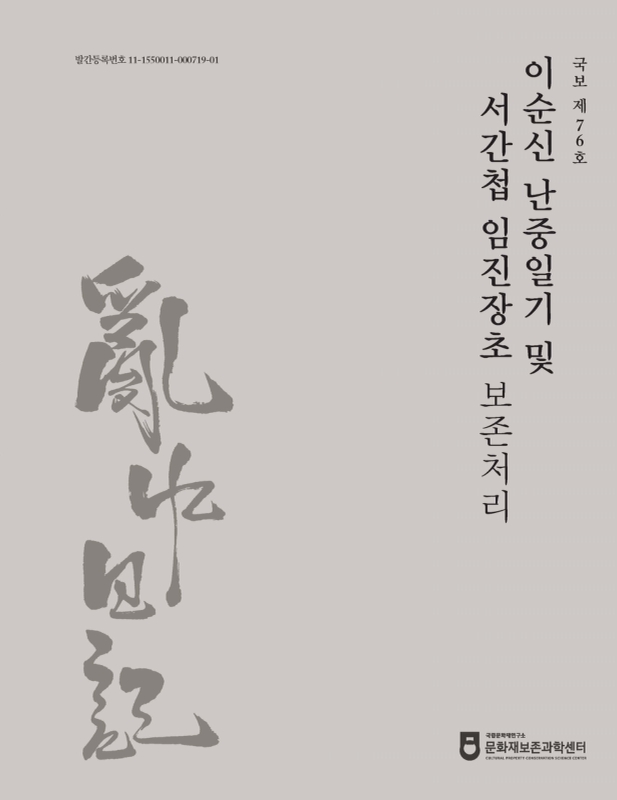 발간등록번호 11-1550011-000719-01
국보 제76호
이순신 난중일기 및
서간첩 임진장초 보존처리
亂中日記
국립문화재연구소
문화재보존과학센터
CULTURAL PROPERTY CONSERVATION SCIENCE CENTER